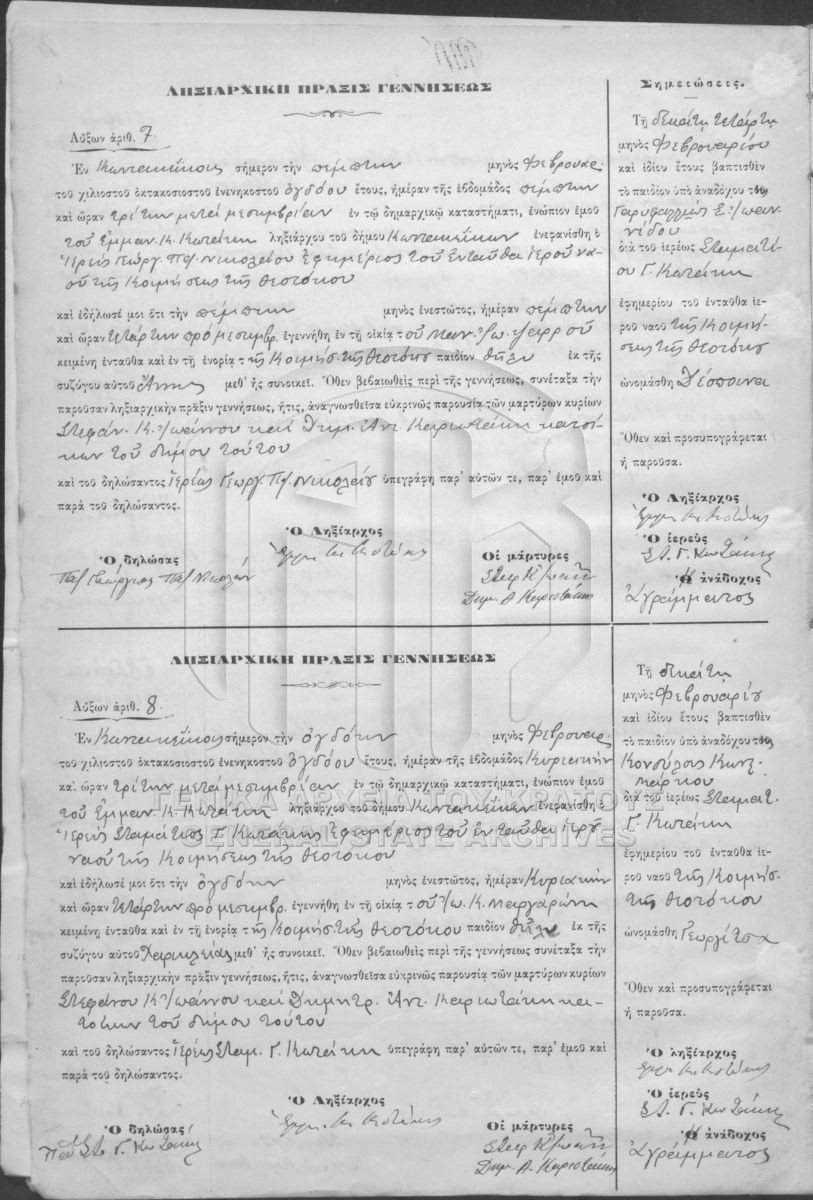 ΛΗΞΙΑΡΧΙΚΗ ΠΡΑΞΙΣ ΓΕΝΝΗΣΕΩΣ
Αὔξων ἀριθ. 7
Ἐν Κατακείκοις σήμερον τὴν πέμπτην μηνὸς Φεβρουαρ.
τοῦ χιλιοστοῦ ὀκτακοσιοστοῦ ἐνενηκοστοῦ ὀγδόου ἔτους, ἡμέραν τῆς ἑβδομάδος πέμπτην
καὶ ὥραν τρίτην μεταμεσημβρίαν ἐν τῷ δημαρχικῷ καταστήματι, ἐνώπιον ἐμοῦ
τοῦ Ἐμμαν. Κ. Κωτάκη ληξιάρχου τοῦ δήμου ἐνεφανίσθη ὁ
Ἱερεὺς Γεώργ. Πα. Νικολάου ἐφημέριος τοῦ ἐνταῦθα ἱεροῦ να-
οῦ τῆς Κοιμήσεως τῆς Θεοτόκου
καὶ ἐδήλωσέ μοι ὅτι τὴν πέμπτην μηνὸς ἐνεστῶτος, ἡμέραν πέμπτην
καὶ ὥραν τετάρτην πρὸ μεσημβρ. ἐγεννήθη ἐν τῇ οἰκίᾳ τοῦ Μαν. Ἰω.
κειμένη ἐνταῦθα καὶ ἐν τῇ ἐνορίᾳ τῆς Κοιμήσ. τῆς Θεοτόκου παιδίον θῆλυ ἐκ τῆς
συζύγου αὐτοῦ Ἄννης μεθ' ἧς συνοικεῖ. Ὅθεν βεβαιωθεὶς περὶ τῆς γεννήσεως, συνέταξα τὴν
παροῦσαν ληξιαρχικὴν πρᾶξιν γεννήσεως, ἥτις, ἀναγνωσθεῖσα εὐκρινῶς παρουσίᾳ τῶν μαρτύρων κυρίων
Στεφάν. Κ. Ἰωάννου καὶ Δημ. Ἀντ. Καριωτάκη κατοί-
κων τοῦ δήμου τούτου
καὶ τοῦ δηλώσαντος Ἱερέως Γεωργ. Πα. Νικολάου ὑπεγράφη παρ' αὐτῶν τε, παρ' ἐμοῦ καὶ
παρὰ τοῦ δηλώσαντος.
Ὁ Ληξίαρχος
Ὁ δηλώσας
Οἱ μάρτυρες
Στεφ Κ Ἰωάννου
Δημ. Α Καριωτάκης
Σημειώσεις.
Τῇ δεκάτῃ τετάρτῃ
μηνὸς Φεβρουαρίου
καὶ ἰδίου ἔτους βαπτισθὲν
τὸ παιδίον ὑπὸ ἀναδόχου της
Γαρυφαλλιᾶς Σ. Ἰωαν-
νίδου
διὰ τοῦ ἱερέως Σταματί-
ου Γ. Κωτάκη
ἐφημερίου τοῦ ἐνταῦθα ἱε-
ροῦ ναοῦ τῆς Κοιμή-
σεως τῆς Θεοτόκου
ὠνομάσθη Δέσποινα
Ὅθεν καὶ προσυπογράφεται
ἡ παροῦσα.
Ὁ Ληξίαρχος
Ὁ ἱερεὺς
Στ. Γ. Κωτάκης
Ἡ ἀνάδοχος
Ἀγράμματος
ΛΗΞΙΑΡΧΙΚΗ ΠΡΑΞΙΣ ΓΕΝΝΗΣΕΩΣ
Αὔξων ἀριθ. 8
Ἐν Κατακείκοις σήμερον τὴν ὀγδόην μηνὸς Φεβρουαρ.
τοῦ χιλιοστοῦ ὀκτακοσιοστοῦ ἐνενηκοστοῦ ὀγδόου ἔτους, ἡμέραν τῆς ἑβδομάδος Κυριακήν
καὶ ὥραν τρίτην μεταμεσημβρίαν ἐν τῷ δημαρχικῷ καταστήματι, ἐνώπιον ἐμοῦ
τοῦ Ἐμμαν. Κ. Κωτάκη ληξιάρχου τοῦ δήμου ἐνεφανίσθη ὁ
Ἱερεὺς Σταμάτιος Γ. Κωτάκης ἐφημέριος τοῦ ἐνταῦθα ἱεροῦ
ναοῦ τῆς Κοιμήσεως τῆς Θεοτόκου
καὶ ἐδήλωσέ μοι ὅτι τὴν ὀγδόην μηνὸς ἐνεστῶτος, ἡμέραν Κυριακήν
καὶ ὥραν τετάρτην πρὸ μεσημβρ. ἐγεννήθη ἐν τῇ οἰκίᾳ τοῦ Ἰω. Κ. Μαργαρώνη
κειμένῃ ἐνταῦθα καὶ ἐν τῇ ἐνορίᾳ τῆς Κοιμήσ. τῆς Θεοτόκου παιδίον θῆλυ ἐκ τῆς
συζύγου αὐτοῦ Χαρικλείας μεθ' ἧς συνοικεῖ. Ὅθεν βεβαιωθεὶς περὶ τῆς γεννήσεως συνέταξα τὴν
παροῦσαν ληξιαρχικὴν πρᾶξιν γεννήσεως, ἥτις, ἀναγνωσθεῖσα εὐκρινῶς παρουσίᾳ τῶν μαρτύρων κυρίων
Στεφάνου Κ. Ἰωάννου καὶ Δημητρ. Ἀντ. Καριωτάκη κα-
τοίκων τοῦ δήμου τούτου
καὶ τοῦ δηλώσαντος Ἱερέως Σταμ. Γ. Κωτάκη ὑπεγράφη παρ' αὐτῶν τε, παρ' ἐμοῦ καὶ
παρὰ τοῦ δηλώσαντος.
Ὁ Ληξίαρχος
Ὁ δηλώσας
Στ. Γ. Κωτάκης
Οἱ μάρτυρες
Στεφ Κ Ἰωάννου
Δημ. Α. Καριωτάκης
Τῇ δεκάτῃ
μηνὸς Φεβρουαρίου
καὶ ἰδίου ἔτους βαπτισθὲν
τὸ παιδίον ὑπὸ ἀναδόχου της
διὰ τοῦ ἱερέως Σταματ.
Γ. Κωτάκη
ἐφημερίου τοῦ ἐνταῦθα ἱε-
ροῦ ναοῦ τῆς Κοιμήσ.
τῆς Θεοτόκου
ὠνομάσθη Γεωργίτσα
Ὅθεν καὶ προσυπογράφεται
ἡ παροῦσα.
Ὁ ληξίαρχος
Ὁ ἱερεὺς
Στ. Γ. Κωτάκης
Ἡ ἀνάδοχος
Ἀγράμματος
ΓΕΝΙΚΑ ΑΡΧΕΙΑ ΤΟΥ ΚΡΑΤΟΥΣ
GENERAL STATE ARCHIVES